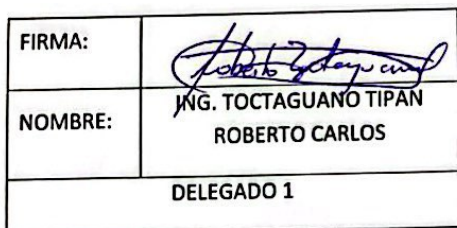 FIRMA:
Roberto Toctaguano
NOMBRE:
ING. TOCTAGUANO TIPAN
ROBERTO CARLOS
DELEGADO 1